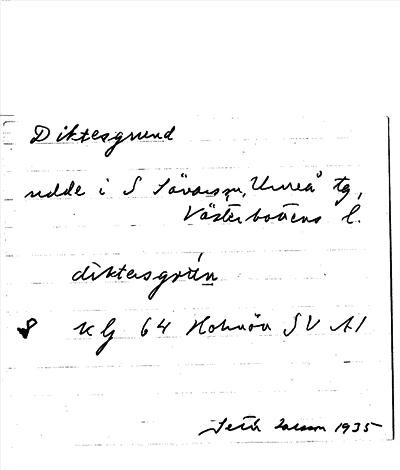 Diktesgrund
udde i S Sävarsm, Umeå tg,
Västerbottens l.
diktesgrún
KG 64 Holmön SV A1
Seth Larsson 1935